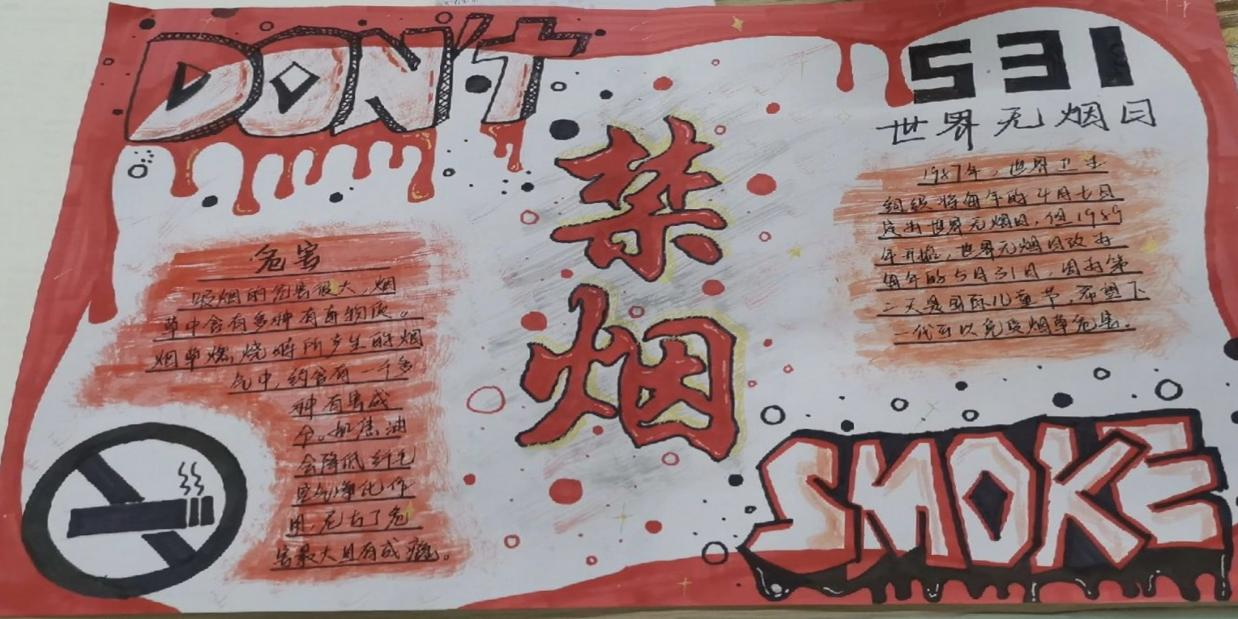 DON'T
禁烟
531
世界无烟日
1987年，世界卫生
组织将每年的4月七日
定为世界无烟日，但1989
年开始，世界无烟日改为
每年的5月31日，因为第
二天是国际儿童节，希望下
一代可以免受烟草危害。
危害
吸烟的危害很大，烟
草中含有多种有毒物质。
烟草燃烧时所产生的烟
气中，约含有一千多
种有害成
分。如焦油
会降低红色
用，尼古丁危
害最大且有成瘾。
SMOKE